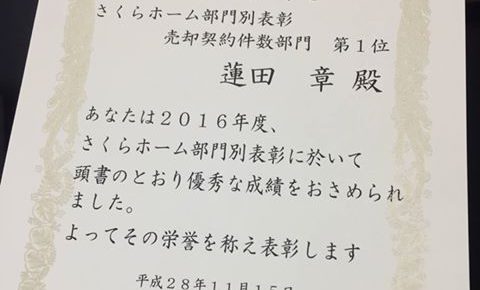 さくらホーム部門別表彰
売却契約件数部門　第１位
蓮田　章 殿
あなたは２０１６年度、
さくらホーム部門別表彰に於いて
頭書のとおり優秀な成績をおさめられ
ました。
よってその栄誉を称え表彰します
平成２８年１１月１５日